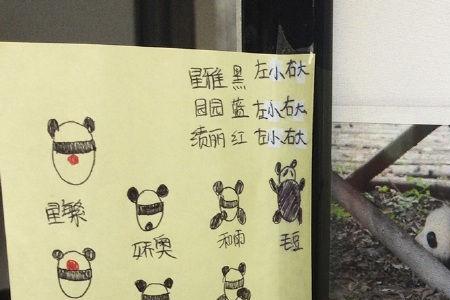 星雅 黑 左小右大
园园 蓝 左小右大
绩丽 红 左小右大
星樂 妖奥 和雨 毛豆